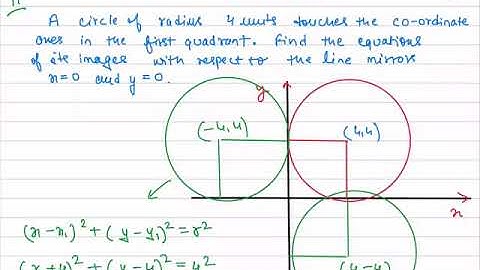 A circle of radius 4 units touches the co-ordinate
axes in the first quadrant. Find the equations
of its images with respect to the line mirrors
x=0 and y=0.
y
(-4,4)
(4,4)
x
(x-x₁)²+(y-y₁)²=r²
(x+4)²+(y-4)²=4²
(4,-4)